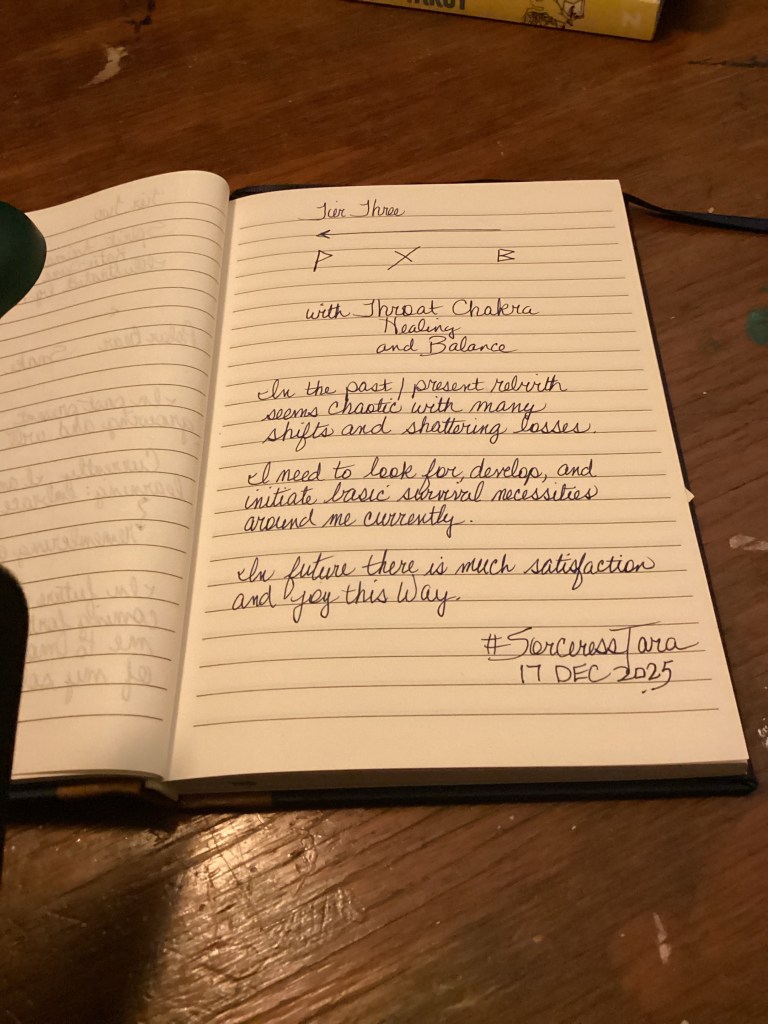 Tier Three
P X B
with Throat Chakra
Healing
and Balance
In the past / present rebirth
seems chaotic with many
shifts and shattering losses.
I need to look for, develop, and
initiate basic survival necessities
around me currently.
In future there is much satisfaction
and joy this Way.
#SorceressTara
17 DEC 2025